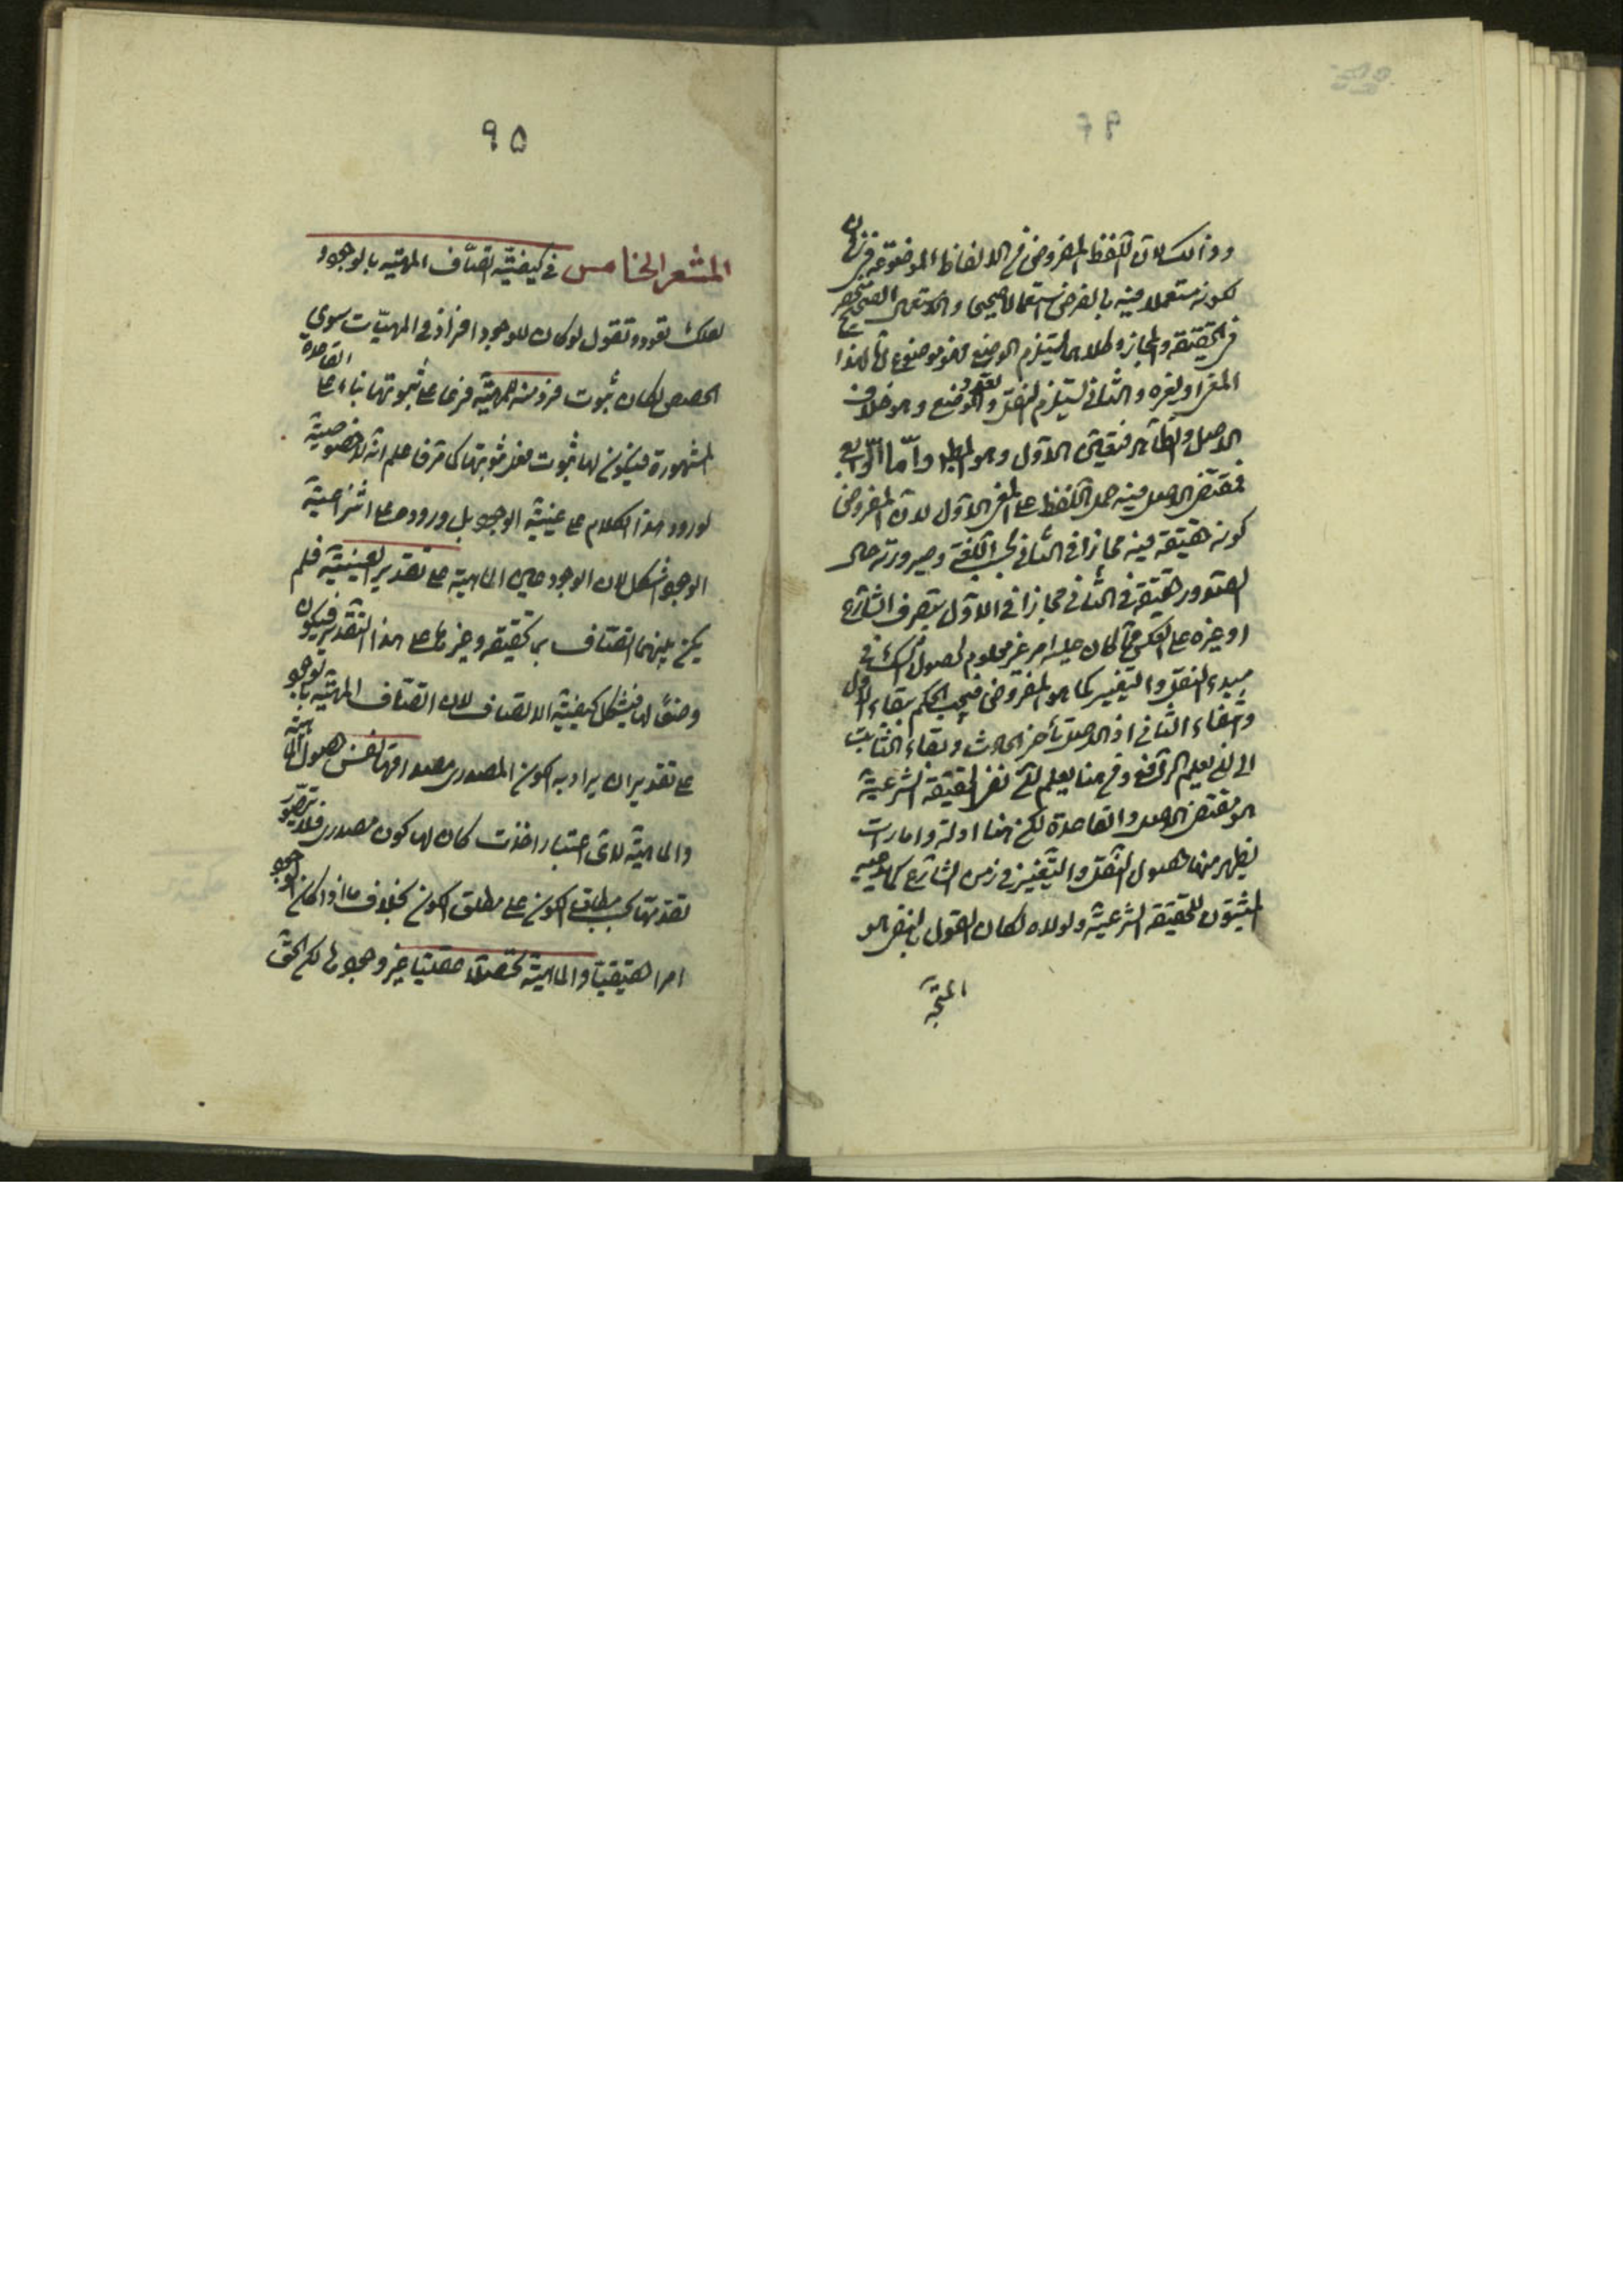 ٩٦
وذلك لان اللفظ المفروض في الالفاظ الموضوعة
لكونه مستعملا فيه بالفرض استعمالا صحيحا والاستعمال الصحيح منحصر
في الحقيقة والمجاز وكلاهما يستلزم الوضع فهو موضوع لهذا
المعنى او لغيره والثاني يستلزم النقل وتعدد الوضع وهو خلاف
الاصل والظاهر فتعين الاول وهو المطلوب واما الرابع
فمقتضى الاصل فيه حمل اللفظ على المعنى الاول لان المفروض
كونه حقيقة فيه مجازا في الثاني بحسب اللغة وصيرورته حال
الصدور حقيقة في الثاني مجازا في الاول بتصرف الشارع
او غيره على العكس مما كان عليه امر غير معلوم لحصول الشك في
مبدء النقل والتغيير كما هو المفروض فيجب الحكم ببقاء الاول
وانتفاء الثاني اذ الاصل تأخر الحادث وبقاء الثابت
الى ان يعلم الرافع ومن هنا يعلم ان نفي الحقيقة الشرعية
هو مقتضى الاصل والقاعدة لكن هنا ادلة وامارات
يظهر منها حصول النقل والتغيير في زمن الشارع كما يدعيه
المثبتون للحقيقة الشرعية ولولاه لكان القول بالنفي هو
المتجه
٩٥
المشعر الخامس في كيفية اتصاف المهية بالوجود
لعلك تعود وتقول لو كان للوجود افراد في المهيات سوى
الحصص لكان ثبوت فرد منه للمهية فرعا على ثبوتها بناء على القاعدة
المشهورة فيكون لها ثبوت قبل ثبوتها كما مر فاعلم انه لا خصوصية
لورود هذا الكلام على عينية الوجود بل وروده على انتزاعية
الوجود اشكل لان الوجود عين الماهية على تقدير العينية فلم
يكن بينهما اتصاف بالحقيقة وغيرها على هذا التقدير فيكون
وصفا لها فيشكل كيفية الاتصاف لان اتصاف المهية بالوجود
على تقدير ان يراد به الكون المصدري مصداقها نفس حصول الماهية
والماهية لاى اعتبار اخذت كان لها كون مصدري فلا يتصور
تقدمها بحسب مطلق الكون على مطلق الكون بخلاف ما اذا كان الوجود
امرا حقيقيا والماهية تحصلا عقليا غير وجودها لكن الحق